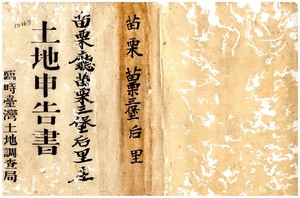 苗栗 苗栗三堡后里
苗栗廳苗栗三堡后里庄
土地申告書
臨時臺灣土地調查局